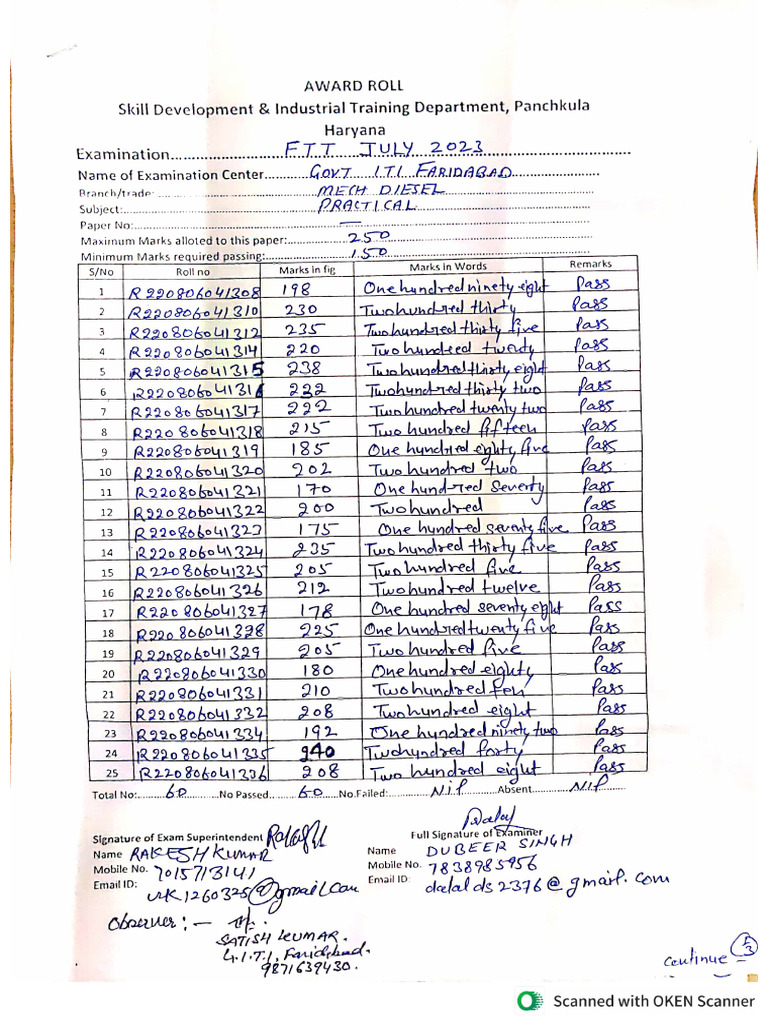 AWARD ROLL
Skill Development & Industrial Training Department, Panchkula
Haryana
Examination........FTT JULY 2023........
Name of Examination Center........GOVT ITI FARIDABAD........
Branch/trade:........MECH DIESEL........
Subject:........PRACTICAL........
Paper No:........—........
Maximum Marks alloted to this paper:........250........
Minimum Marks required passing:........150........
S/No Roll no Marks in fig Marks in Words Remarks
1 R220806041308 198 One hundred ninety eight Pass
2 R220806041310 230 Two hundred thirty Pass
3 R220806041312 235 Two hundred thirty five Pass
4 R220806041314 220 Two hundred twenty Pass
5 R220806041315 238 Two hundred thirty eight Pass
6 R220806041316 232 Two hundred thirty two Pass
7 R220806041317 222 Two hundred twenty two Pass
8 R220806041318 215 Two hundred fifteen Pass
9 R220806041319 185 One hundred eighty five Pass
10 R220806041320 202 Two hundred two Pass
11 R220806041321 170 One hundred seventy Pass
12 R220806041322 200 Two hundred Pass
13 R220806041323 175 One hundred seventy five Pass
14 R220806041324 235 Two hundred thirty five Pass
15 R220806041325 205 Two hundred five Pass
16 R220806041326 212 Two hundred twelve Pass
17 R220806041327 178 One hundred seventy eight Pass
18 R220806041328 225 One hundred twenty five Pass
19 R220806041329 205 Two hundred five Pass
20 R220806041330 180 One hundred eighty Pass
21 R220806041331 210 Two hundred Ten Pass
22 R220806041332 208 Two hundred eight Pass
23 R220806041334 192 One hundred ninety two Pass
24 R220806041335 240 Two hundred forty Pass
25 R220806041336 208 Two hundred eight Pass
Total No:........60........No Passed........60........No.Failed:........Nil........Absent........Nil........
Signature of Exam Superintendent Full Signature of Examiner
Name RAKESH KUMAR Name DUBEER SINGH
Mobile No. 7015713141 Mobile No. 7838985956
Email ID: Email ID: dalal ds 2376@gmail.com
Observer: –
SATISH KUMAR.
G.I.T.I, Faridabad.
9871639430.
continue
Scanned with OKEN Scanner